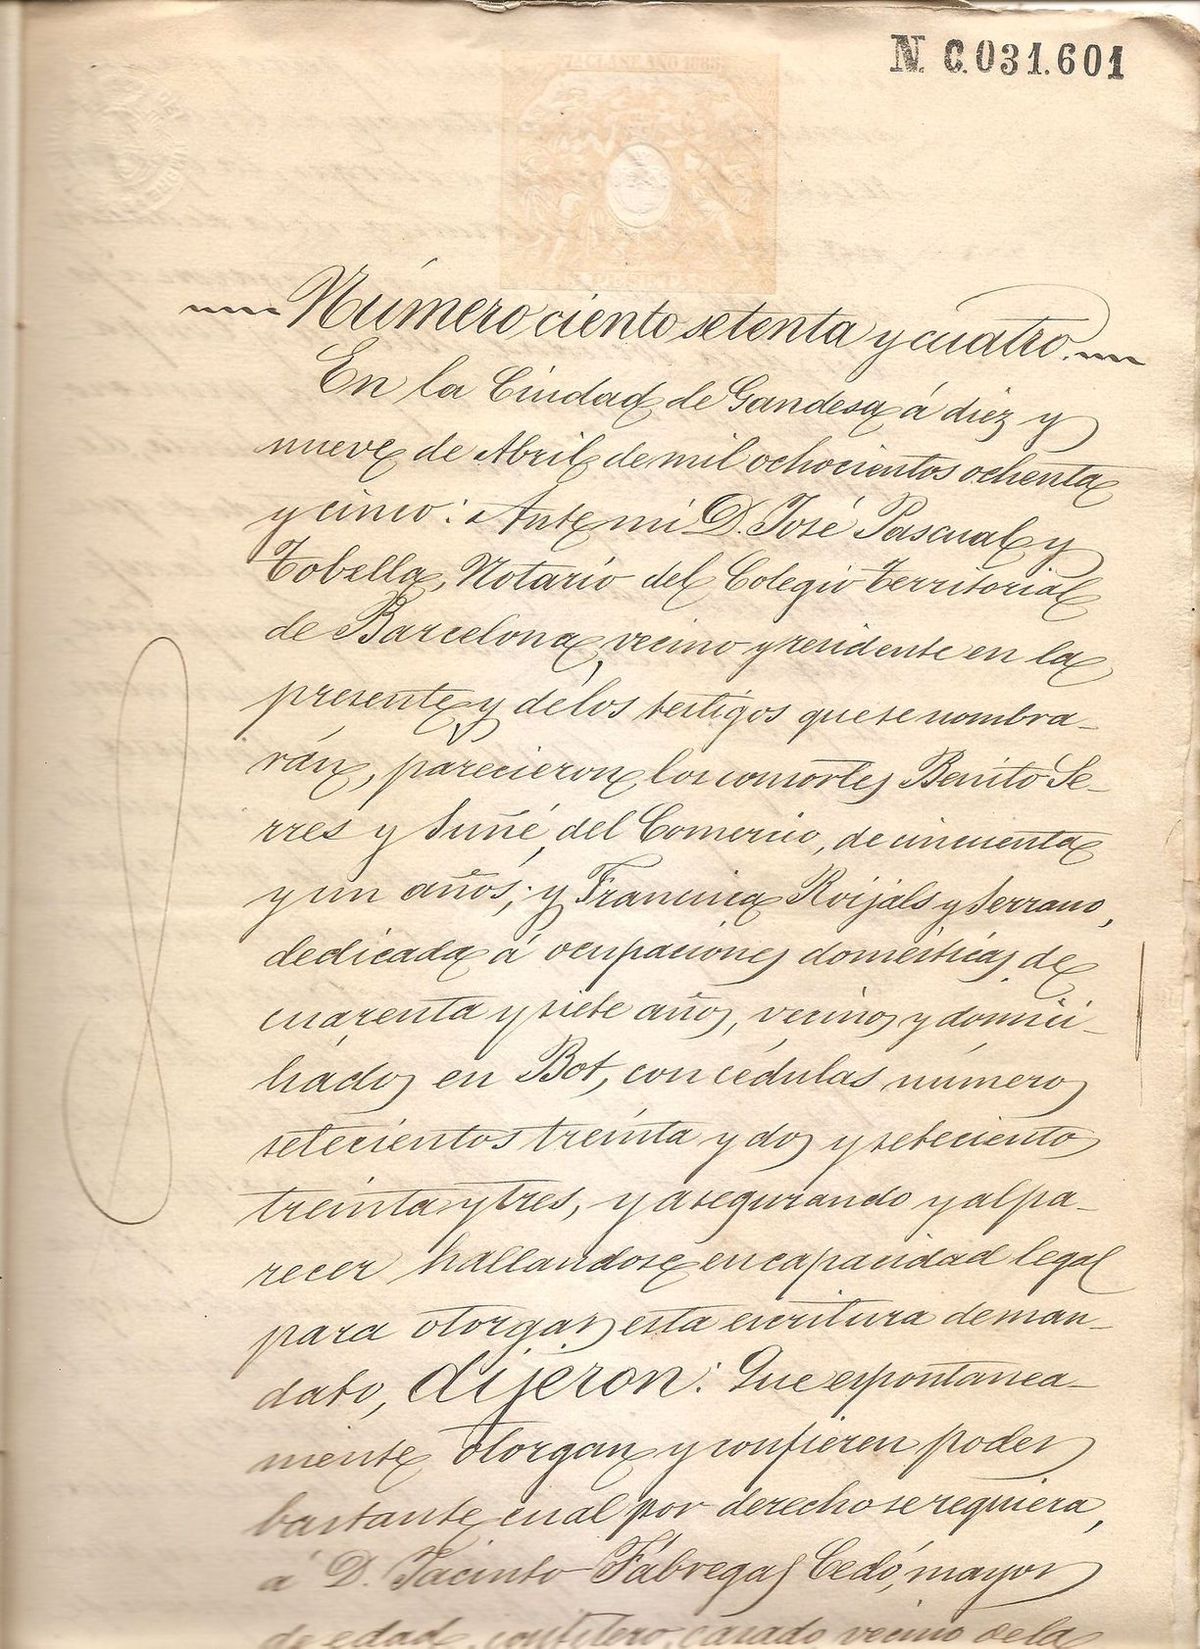 N. C.031.601
7ª CLASE AÑO 1885
Número ciento setenta y cuatro.
En la Ciudad de Gandesa á diez y
nueve de Abril de mil ochocientos ochenta
y cinco: Ante mi D. José Pascual y
Tobella, Notario del Colegio territorial
de Barcelona, vecino y residente en la
presente y de los testigos que se nombra-
rán, parecieron los consortes Benito Se-
rres y Suñé, del Comercio, de cincuenta
y un años; y Francisca Roijals y Serrano,
dedicada á ocupaciones domésticas, de
cuarenta y siete años, vecinos y domici-
liados en Bot, con cédulas números
setecientos treinta y dos y setecientos
treinta y tres, y asegurando y al pa-
recer hallandose en capacidad legal
para otorgar esta escritura de man-
dato, dijeron: Que espontanea-
mente otorgan y confieren poder
bastante cual por derecho se requiera,
á D. Jacinto Fábregas Cedó, mayor
de edad, confitero, casado vecino de la